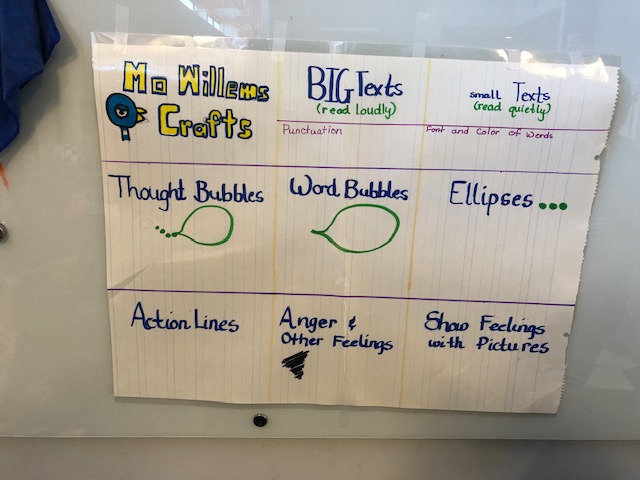 Mo Willems
Crafts
BIG Texts
(read loudly)
Punctuation
small Texts
(read quietly)
Font and Color of Words
Thought Bubbles
Word Bubbles
Ellipses...
Action Lines
Anger &
Other Feelings
Show Feelings
with Pictures